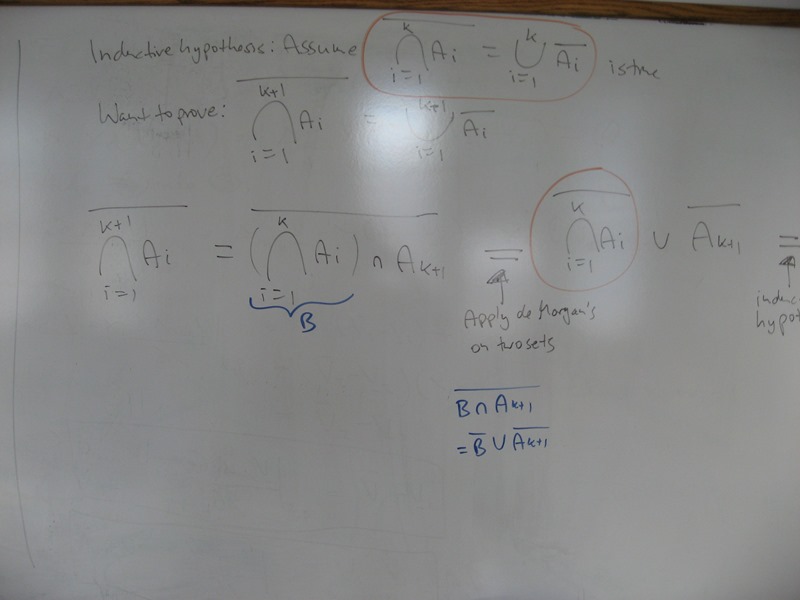 Inductive hypothesis: Assume $\overline{\bigcap_{i=1}^{k} A_i} = \bigcup_{i=1}^{k} \overline{A_i}$ is true
Want to prove: $\overline{\bigcap_{i=1}^{k+1} A_i} = \bigcup_{i=1}^{k+1} \overline{A_i}$
$\overline{\bigcap_{i=1}^{k+1} A_i} = \overline{\left(\bigcap_{i=1}^{k} A_i\right) \cap A_{k+1}} = \overline{\bigcap_{i=1}^{k} A_i} \cup \overline{A_{k+1}} =$
B
Apply de Morgan's
on two sets
induc
hypot
$\overline{B \cap A_{k+1}}$
$= \overline{B} \cup \overline{A_{k+1}}$